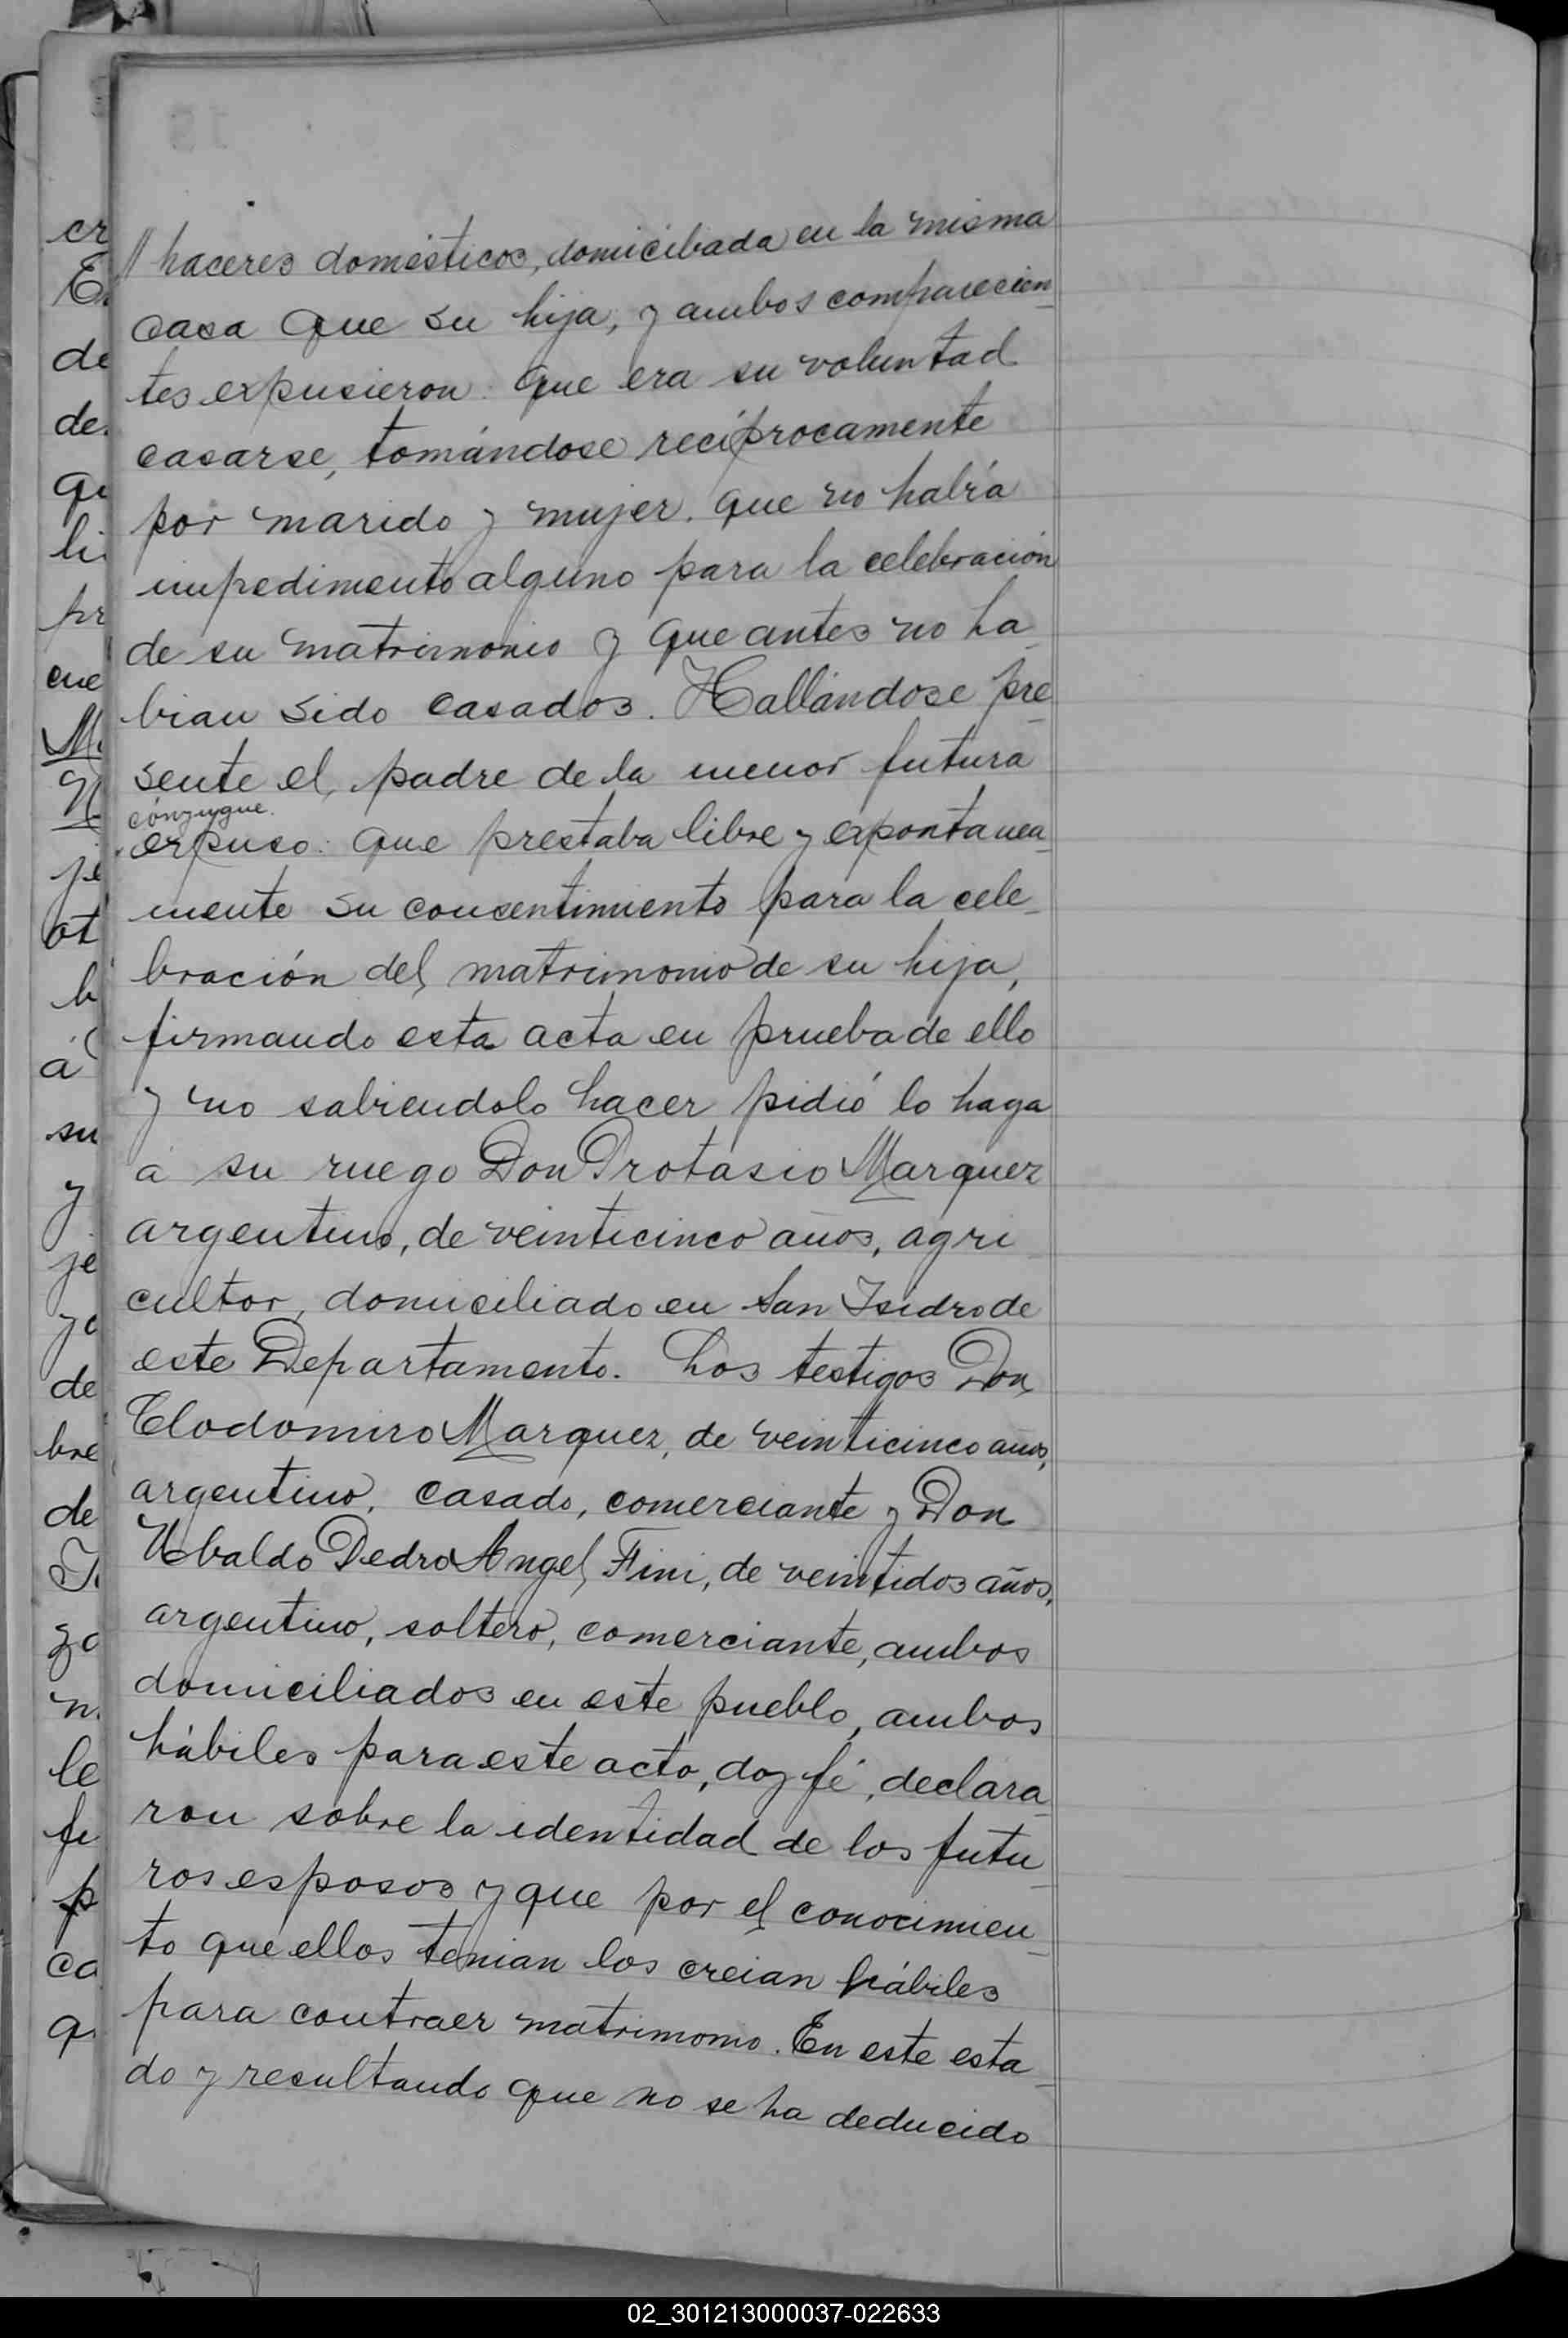 // haceres domésticos, domiciliada en la misma
casa que su hija, y ambos comparecien_
tes expusieron: que era su voluntad
casarse, tomándose recíprocamente
por marido y mujer. que no había
impedimento alguno para la celebración
de su matrimonio y que antes no ha_
bian sido casados. Hallándose pre_
sente el padre de la menor futura
cónyugue.
expuso: que prestaba libre y expontanea_
mente su consentimiento para la cele_
bración del matrimonio de su hija,
firmando esta acta en prueba de ello
y no sabiendolo hacer pidió lo haga
á su ruego Don Protasio Marquez
argentino, de veinticinco años, agri_
cultor, domiciliado en San Isidro de
este Departamento. Los testigos Don
Clodomiro Marquez, de veinticinco años,
argentino, casado, comerciante y Don
Ubaldo Pedro Angel Fini, de veintidos años,
argentino, soltero, comerciante, ambos
domiciliados en este pueblo, ambos
hábiles para este acto, doy fé, declara_
ron sobre la identidad de los futu_
ros esposos y que por el conocimien_
to que ellos tenian los creian hábiles
para contraer matrimonio. En este esta_
do y resultando que no se ha deducido
02_301213000037-022633